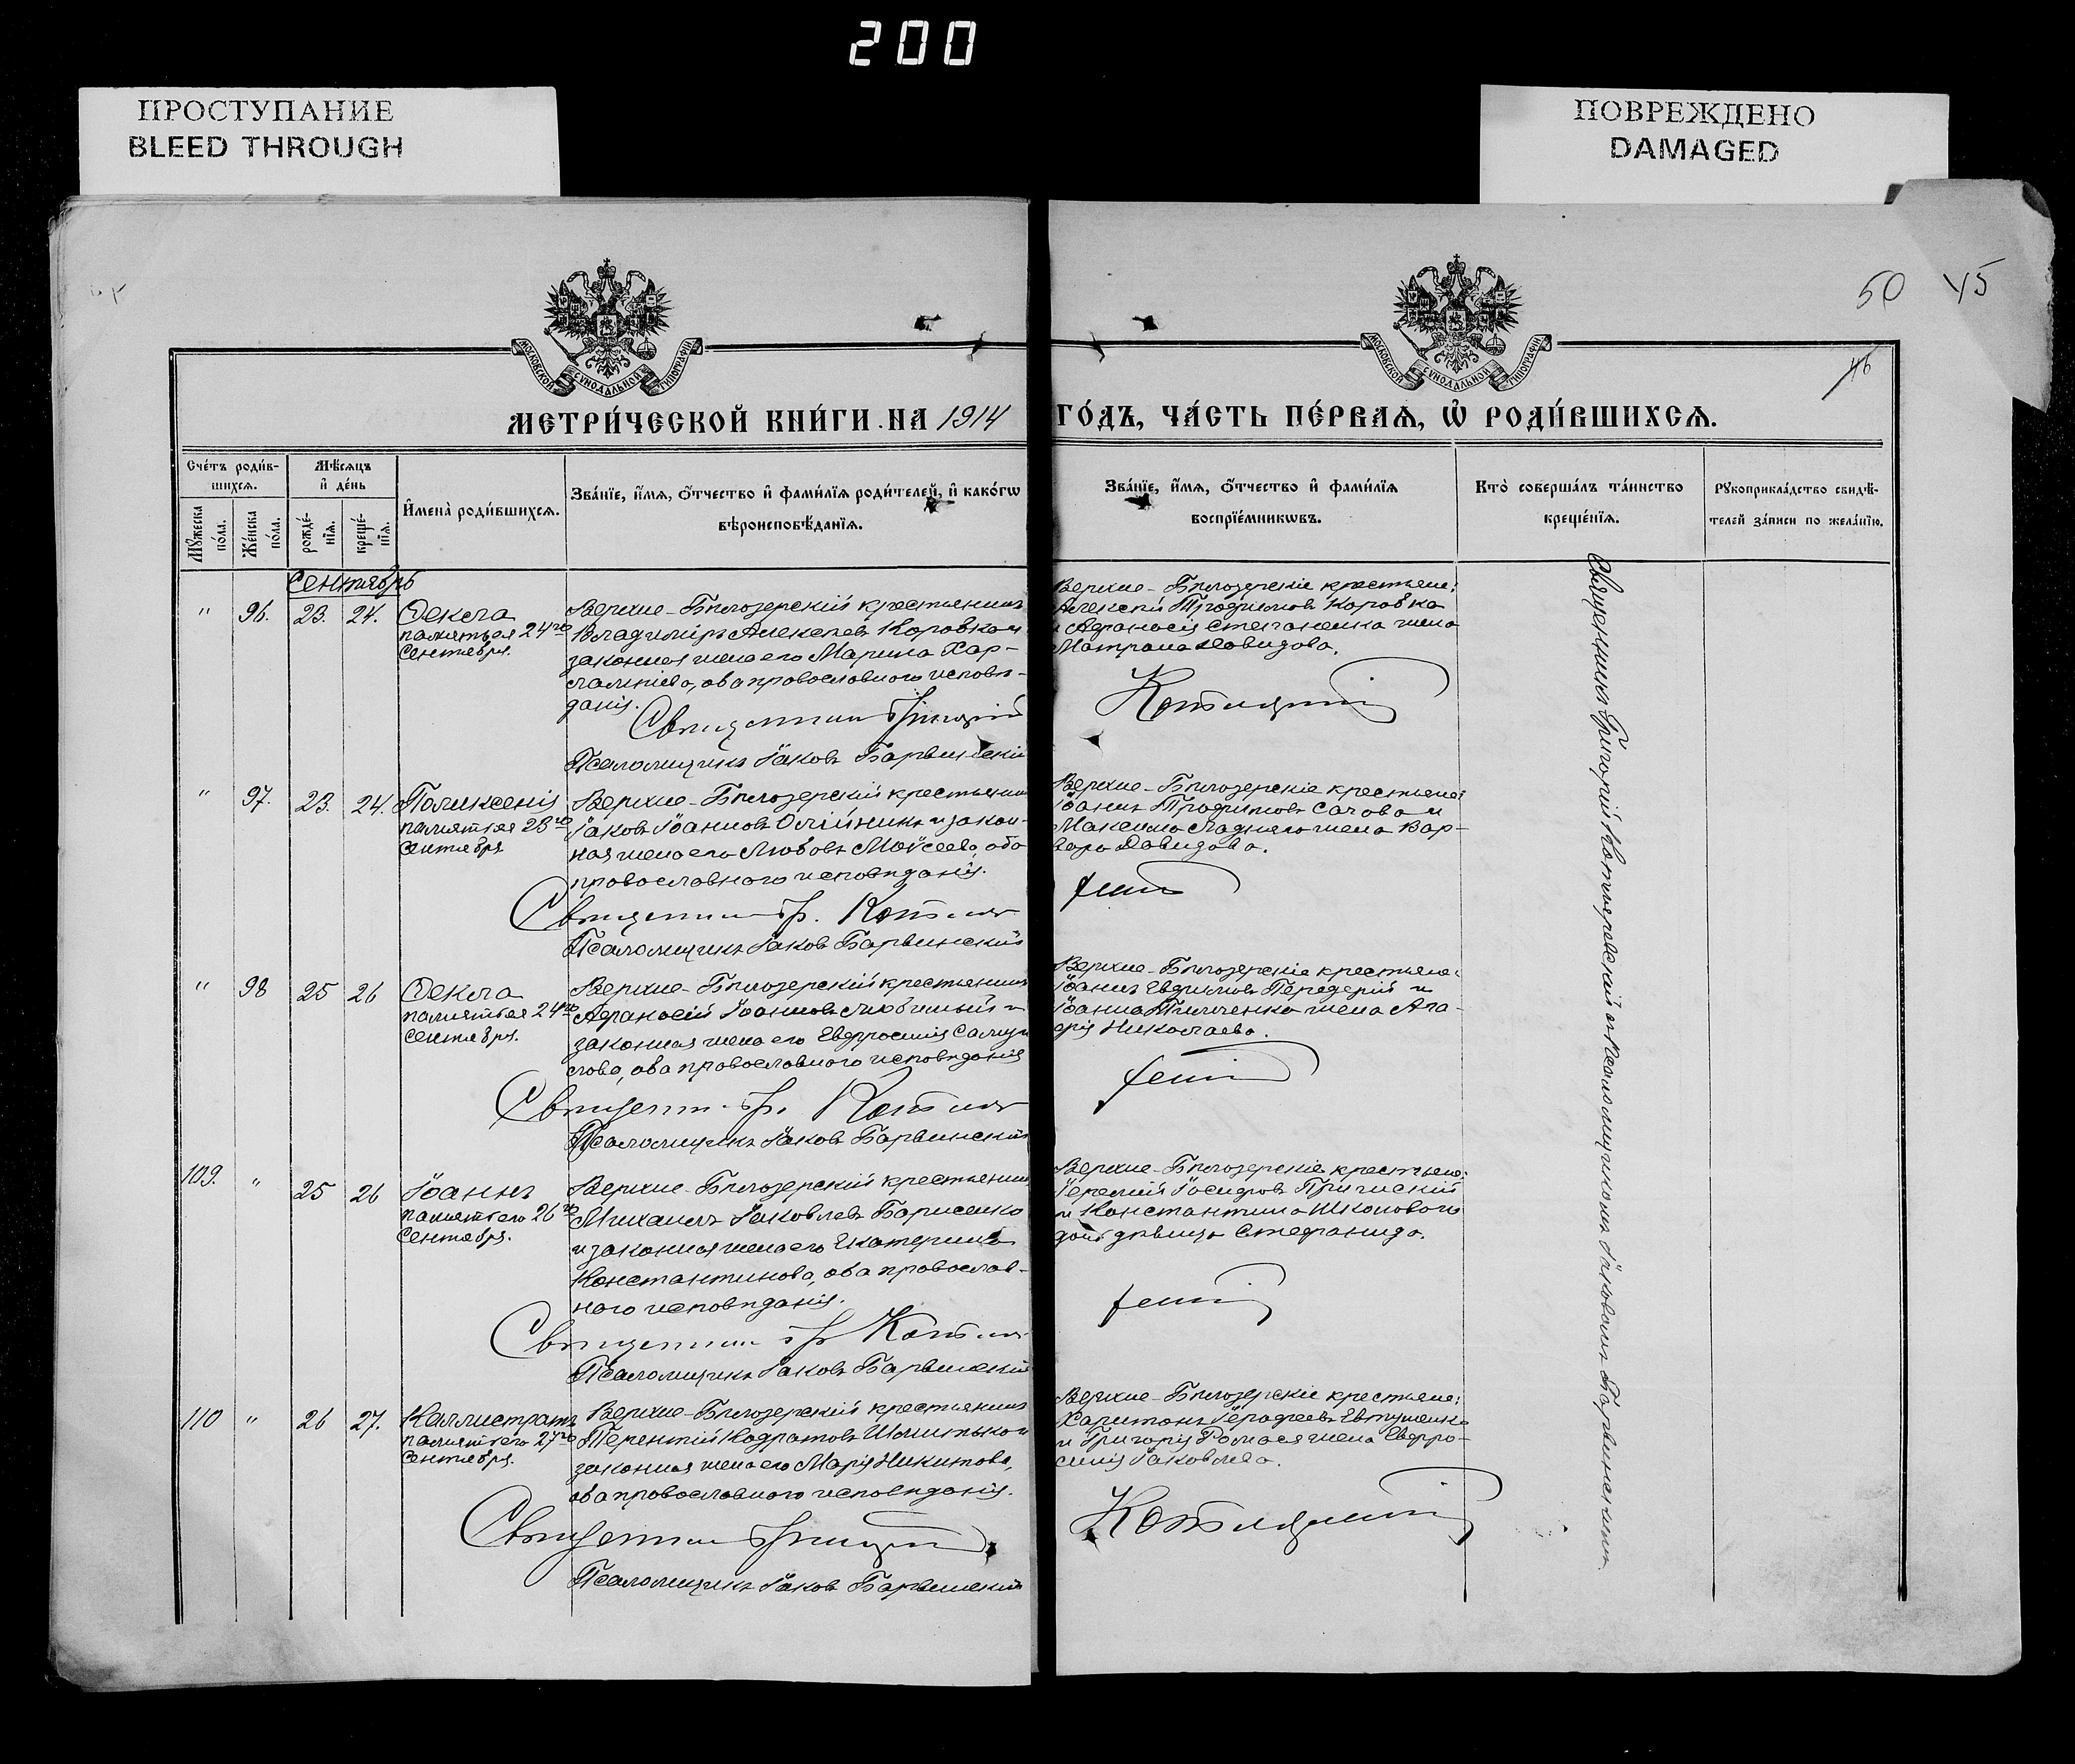 200
ПРОСТУПАНИЕ
BLEED THROUGH
ПОВРЕЖДЕНО
DAMAGED
50 45
46
МОСКОВСКОЙ СѴНОДАЛЬНОЙ ТИПОГРАФІИ
МОСКОВСКОЙ СѴНОДАЛЬНОЙ ТИПОГРАФІИ
МЕТРИ́ЧЕСКОЙ КНИ́ГИ НА 1914
ГО́ДЪ, ЧА́СТЬ ПЕ́РВАѦ, Ѽ РОДИ́ВШИХСѦ.
Сче́тъ роди́в-
шихсѧ.
Мꙋ́жеска
по́ла.
Же́нска
по́ла.
Мѣ́сѧцъ
и҆ де́нь
рожде́-
нїѧ.
креще́-
нїѧ.
И҆мена̀ роди́вшихсѧ.
Зва́нїе, и҆́мѧ, ѻ҆́тчество и҆ фами́лїѧ роди́телей, и҆ како́гѡ
вѣроисповѣ́данїѧ.
Зва́нїе, и҆́мѧ, ѻ҆́тчество и҆ фами́лїѧ
воспрїе́мникѡвъ.
Кто̀ соверша́лъ та́инство
креще́нїѧ.
Рꙋкоприкла́дство свидѣ́-
телей за́писи по жела́нїю.
Сентябрь
" 96. 23. 24. Ѳекла
памятъея 24го
Сентября.
Верхне-Бѣлозерскій крестьянинъ
Владиміръ Алексѣевъ Коровка и
законная жена его Марина Хар-
лампіева, оба православнаго исповѣ-
данія.
Священникъ Григорій
Псаломщикъ Іаковъ Барвинскій
Верхне-Бѣлозерскіе крестьяне:
Алексѣй Трофимовъ Коровка
и Аѳанасія Степаненка жена
Матрона Давидова.
Котляревскій
" 97. 23. 24. Поликсенія
память ея 23го
Сентября
Верхне-Бѣлозерскій крестьянинъ
Іаковъ Іоанновъ Олійникъ и закон-
ная жена его Любовь Моѵсеева, оба
православнаго исповѣданія.
Священникъ Гр. Котляр
Псаломщикъ Іаковъ Барвинскій
Верхне-Бѣлозерскіе крестьяне:
Іоаннъ Трофимовъ Сачова и
Максима Ладнаго жена Вар-
вара Давидова.
" 98 25 26 Ѳекла
память ея 24го
Сентября.
Верхне-Бѣлозерскій крестьянинъ
Аѳанасій Іоанновъ Любимый и
законная жена его Евфросинія Самуи
лова, оба православнаго исповѣданія
Священ. Гр. Котляр
Псаломщикъ Іаковъ Барвинскій
Верхне-Бѣлозерскіе крестьяне:
Іоаннъ Евфимовъ Передерій и
Іоанна Тимченка жена Ага-
фія Николаева.
109. " 25 26 Іоаннъ
память его 26го
Сентября.
Верхне-Бѣлозерскій крестьянинъ
Михаилъ Іаковлевъ Борисенко
и законная жена его Екатерина
Константинова, оба православ-
наго исповѣданія.
Священникъ Гр Котляр
Псаломщикъ Іаковъ Барвинскій
Верхне-Бѣлозерскіе крестьяне:
Іеремій Іосифовъ
и Константина Школоваго
дочь дѣвица Стефанида.
110 " 26 27. Каллистратъ
память его 27го
Сентября.
Верхне-Бѣлозерскій крестьянинъ
Терентій Кодратовъ Шмитько и
законная жена его Марія Никитова,
оба православнаго исповѣданія.
Священникъ Григорій
Псаломщикъ Іаковъ Барвинскій
Верхне-Бѣлозерскіе крестьяне:
Харитонъ Іероѳеевъ Евтушенко
и Григорія Ромася жена Евфро-
синія Іаковлева.
Котляревскій
Священникъ Григорій Котляревскій съ Псаломщикомъ Іаковомъ Барвинскимъ